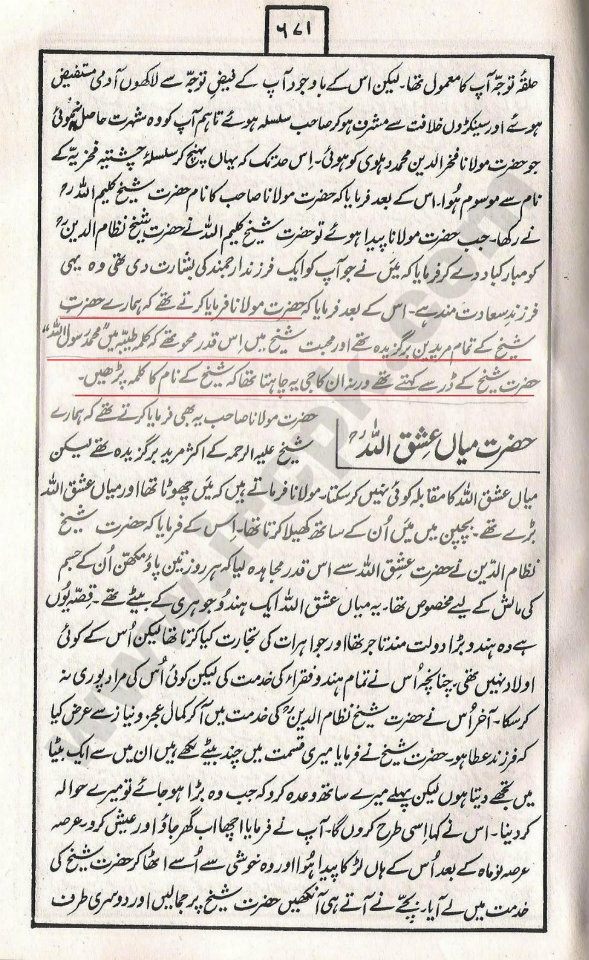 ۶۷۱
حلقۂ توجہ آپ کا معمول تھا۔ لیکن اس کے باوجود آپ کے فیضِ توجہ سے لاکھوں آدمی مستفیض
ہوئے اور سینکڑوں خلافت سے مشرف ہو کر صاحب سلسلہ ہوئے تاہم آپ کو وہ شہرت حاصل نہ ہوئی
جو حضرت مولانا فخرالدین محمد دہلوی کو ہوئی۔ اس حد تک کہ یہاں پہنچ کر سلسلۂ چشتیہ فخریہ کے
نام سے موسوم ہُوا۔ اس کے بعد فرمایا کہ حضرت مولانا صاحب کا نام حضرت شیخ کلیم اللہ رح
نے رکھا۔ جب حضرت مولانا پیدا ہوئے تو حضرت شیخ کلیم اللہ نے حضرت شیخ نظام الدین رح
کو مبارکباد دے کر فرمایا کہ میں نے جو آپ کو ایک فرزند ارجمند کی بشارت دی تھی وہ یہی
فرزندِ سعادت مند ہے۔ اس کے بعد فرمایا کہ حضرت مولانا فرمایا کرتے تھے کہ ہمارے حضرت
شیخ کے تمام مریدین برگزیدہ تھے اور محبت شیخ میں اس قدر محو تھے کہ کلمہ طیبہ میں "محمد رسول اللہ"
حضرت شیخ کے ڈر سے کہتے تھے ورنہ ان کا جی یہ چاہتا تھا کہ شیخ کے نام کا کلمہ پڑھیں۔
حضرت میاں عشق اللہ رح
حضرت مولانا صاحب یہ بھی فرمایا کرتے تھے کہ ہمارے
شیخ علیہ الرحمہ کے اکثر مرید برگزیدہ تھے لیکن
میاں عشق اللہ کا مقابلہ کوئی نہیں کر سکتا۔ مولانا فرماتے ہیں کہ میں چھوٹا تھا اور میاں عشق اللہ
بڑے تھے۔ بچپن میں میں اُن کے ساتھ کھیلا کرتا تھا۔ اِس کے فرمایا کہ حضرت شیخ
نظام الدّین نے حضرت عشق اللہ سے اس قدر مجاہدہ لیا کہ ہر روز تین پاؤ مکھن اُن کے جسم
کی مالش کے لیے مخصوص تھا۔ یہ میاں عشق اللہ ایک ہندو جوہری کے بیٹے تھے۔ قصہ یُوں
ہے وہ ہندو بڑا دولت مند تاجر تھا اور جواہرات کی تجارت کیا کرتا تھا لیکن اُس کے کوئی
اولاد نہیں تھی۔ چنانچہ اُس نے تمام ہندو فقراء کی خدمت کی لیکن کوئی اُس کی مراد پوری نہ
کر سکا۔ آخر اُس نے حضرت شیخ نظام الدین رح کی خدمت میں آ کر کمال عجز و نیاز سے عرض کیا
کہ فرزند عطا ہو۔ حضرت شیخ نے فرمایا میری قسمت میں چند بیٹے لکھے ہیں ان میں سے ایک بیٹا
میں تجھے دیتا ہوں لیکن پہلے میرے ساتھ وعدہ کرو کہ جب وہ بڑا ہو جائے تو میرے حوالہ
کر دینا۔ اس نے کہا اِسی طرح کروں گا۔ آپ نے فرمایا اچھا اب گھر جاؤ اور عیش کرو۔ عرصہ
عرصہ نو ماہ کے بعد اُس کے ہاں لڑکا پیدا ہُوا اور وہ خوشی سے اُسے اٹھا کر حضرت شیخ کی
خدمت میں لے آیا۔ بچّے نے آتے ہی آنکھیں حضرت شیخ پر جما لیں اور دوسری طرف